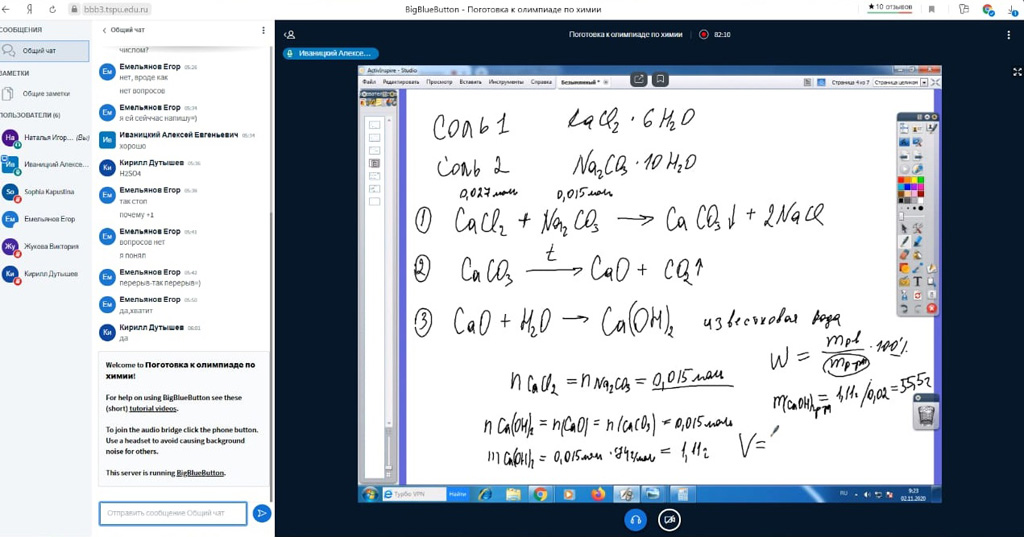 bbb3.tspu.edu.ru
BigBlueButton - Поготовка к олимпиаде по химии
★10 отзывов
СООБЩЕНИЯ
Общий чат
ЗАМЕТКИ
Общие заметки
ПОЛЬЗОВАТЕЛИ (6)
На Наталья Игор... (Вы)
Ив Иваницкий Алексе...
So Sophia Kapustina
Ем Емельянов Егор
Жу Жукова Виктория
Ки Кирилл Дутышев
Общий чат
числом?
Ем Емельянов Егор 05:26
нет, вроде как
нет вопросов
Ем Емельянов Егор 05:34
я ей сейччас напишу=)
Ив Иваницкий Алексей Евгеньевич 05:34
хорошо
Ки Кирилл Дутышев 05:36
H2SO4
Ем Емельянов Егор 05:38
так стоп
почему +1
Ем Емельянов Егор 05:41
вопросов нет
я понял
Ем Емельянов Егор 05:42
перерыв-так перерыв=)
Ем Емельянов Егор 05:52
да,хватит
Ки Кирилл Дутышев 06:03
да
Welcome to Поготовка к олимпиаде по химии!
For help on using BigBlueButton see these (short) tutorial videos.
To join the audio bridge click the phone button. Use a headset to avoid causing background noise for others.
This server is running BigBlueButton.
Отправить сообщение Общий чат
Поготовка к олимпиаде по химии 82:10
Иваницкий Алексе...
ActivInspire - Studio
Файл Редактировать Просмотр Вставить Инструменты Справка Безымянный* Страница 4 из 7 Страница целиком
Соль 1 CaCl2 · 6H2O
Соль 2 Na2CO3 · 10H2O
0,027моль 0,015моль
① CaCl2 + Na2CO3 → CaCO3↓ + 2NaCl
② CaCO3 →t CaO + CO2↑
③ CaO + H2O → Ca(OH)2 известковая вода
W = mрв / mр-р · 100%
nCaCl2 = nNa2CO3 = 0,015моль
m(Ca(OH)2)р-р = 1,11г/0,02 = 55,5г
nCa(OH)2 = n(CaO) = n(CaCO3) = 0,015моль
mCa(OH)2 = 0,015моль · 74г/моль = 1,11г
V =
Турбо VPN Найти
RU 9:23
02.11.2020